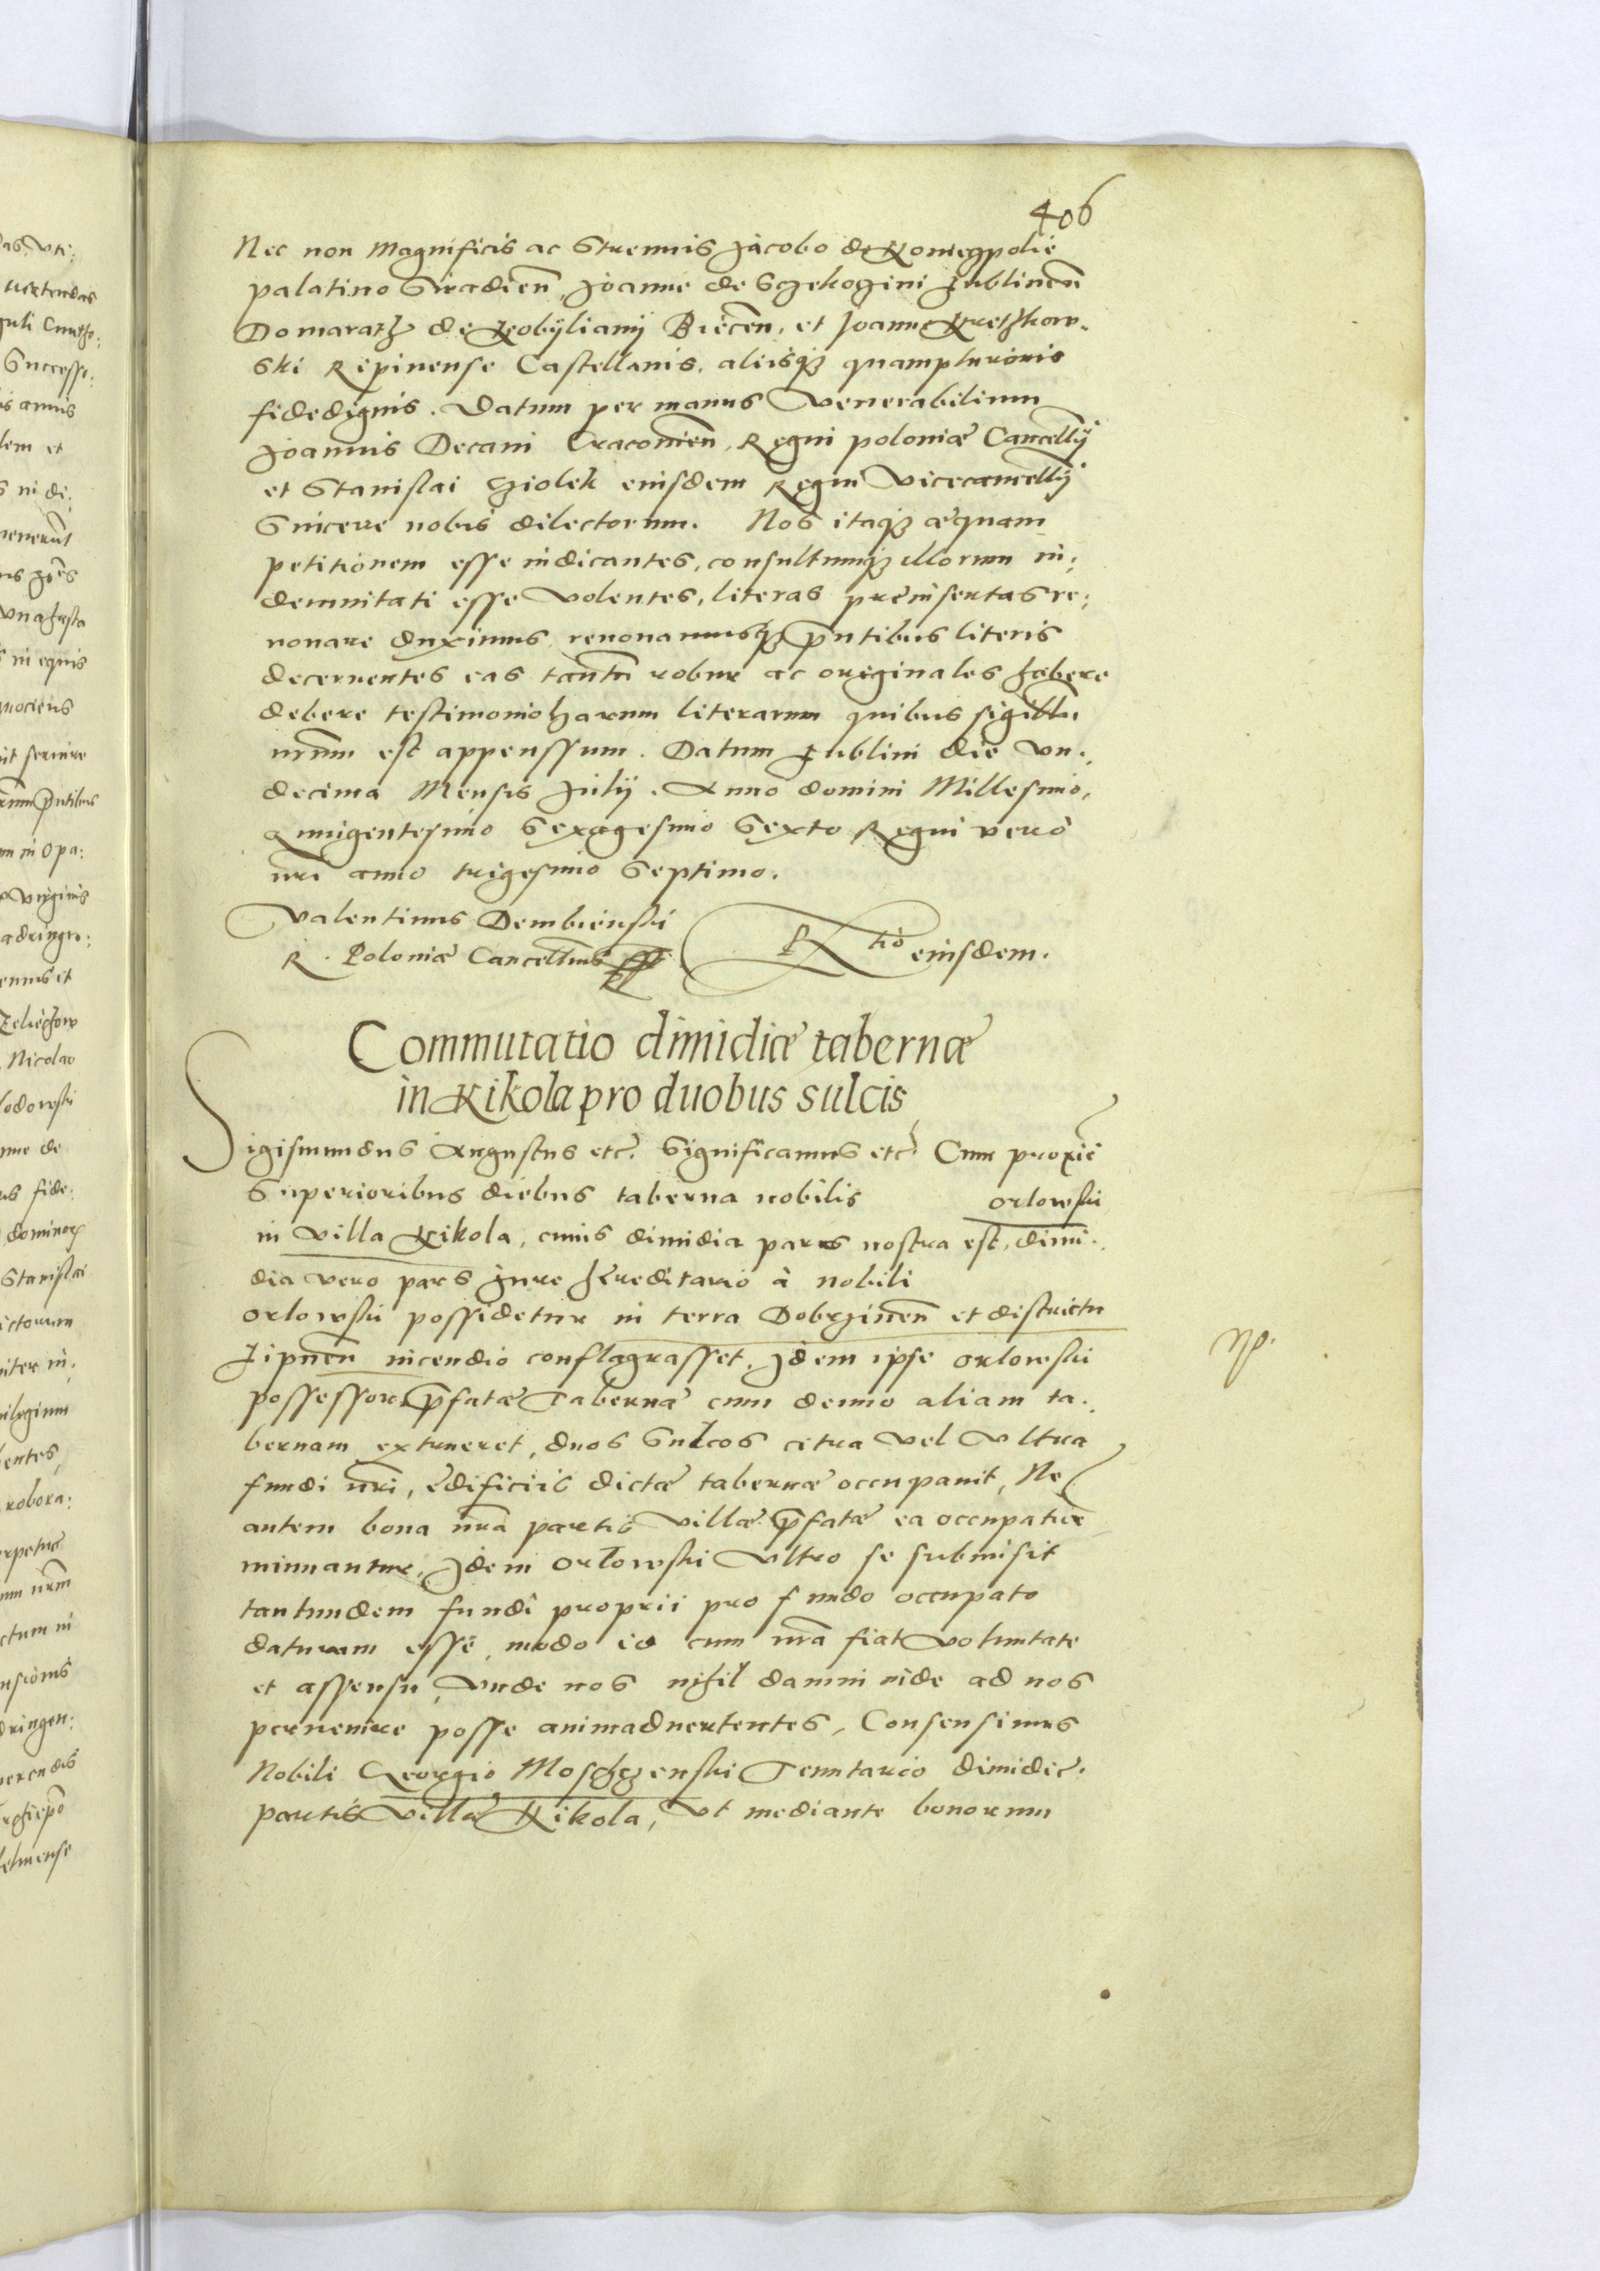 406
Nec non Magnificis ac Strenuis Jacobo de Konieczpolie
palatino Siradień, Joanne de Sczekoczini Lublineń
Domarath de Kobÿlianÿ Biecen, et Joanne Kretzkow-
ski Ripinense Castellanis, aliisqȝ quampluribus
fidedignis. Datum per manus Venerabilium
Joannis Decani Cracovień, Regni poloniæ Cancellÿ
et Stanislai Cziolek eiusdem Regni Vicecancellÿ
Sincere nobis dilectorum. Nos itaqȝ æquam
petitionem esse iudicantes, consultumqȝ illorum in:
demnitati esse Volentes, literas preinsertas re:
novare duximus, renovamusqȝ pntibus literis
decernentes eas tantū robur ac originales habere
debere testimonio harum literarum quibus sigillū
nrum est appenssum. Datum Lublini die vn:
decima Mensis Julÿ. Anno domini Millesimo,
Quingentesimo Sexagesimo Sexto Regni vero
nri anno trigesimo Septimo.
Valentinus Dembienski
R. Poloniæ Cancellrius
Rtio eiusdem.
Commutatio dimidiæ tabernæ
in Kikola pro duobus sulcis
Sigismundus Augustus etc. Significamus etc. Cum proxie
Superioribus diebus taberna nobilis orlowski
in Villa Kikola, cuius dimidia pars nostra est, dimi:
dia vero pars Jure hereditario à nobili
orlowski possidetur in terra Dobrzinen et districtu
Lipnen incendio conflagrasset. Idem ipse orlowski
possessor pfatæ Tabernæ cum denuo aliam ta:
bernam extrueret, duos Sulcos citra Vel Vltra
fundi nri, ędificiis dictæ tabernæ occupavit, Ne
autem bona nra partis Villæ pfatæ ea occupatioe
minuantur, Idem orlowski Vltro se submisit
tantundem fundi proprii pro fundo occupato
daturum esse, modo id cum nra fiat Voluntate
et assensu, Vnde nos nihil damni inde ad nos
pervenire posse animadvertentes, Consensimus
Nobili Georgio Moschczenski Tenutario dimidie
partis Villæ Kikola, Vt mediante bonorum